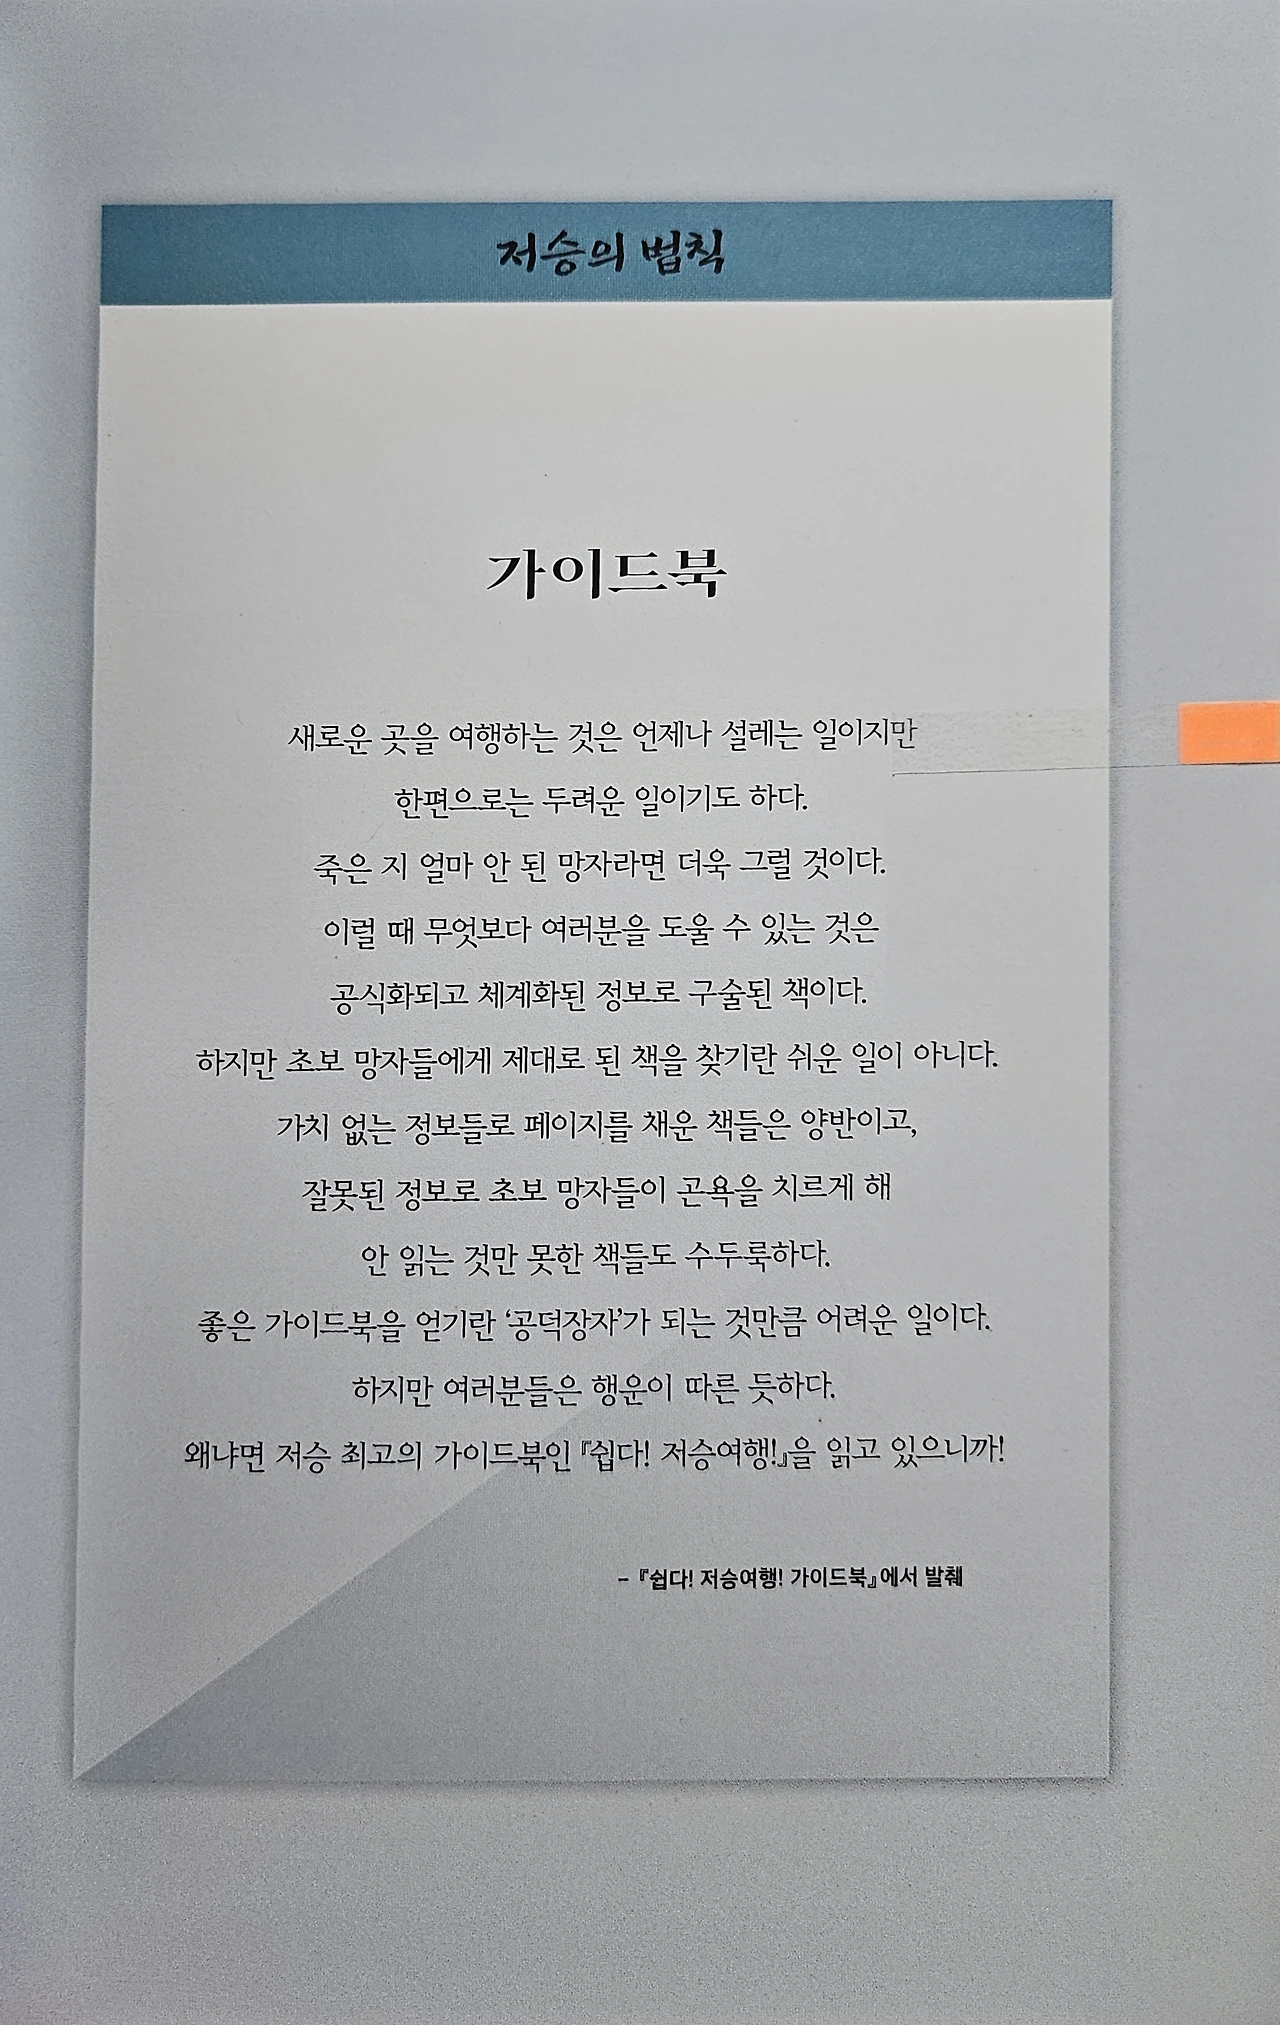 저승의 법칙
가이드북
새로운 곳을 여행하는 것은 언제나 설레는 일이지만
한편으로는 두려운 일이기도 하다.
죽은 지 얼마 안 된 망자라면 더욱 그럴 것이다.
이럴 때 무엇보다 여러분을 도울 수 있는 것은
공식화되고 체계화된 정보로 구술된 책이다.
하지만 초보 망자들에게 제대로 된 책을 찾기란 쉬운 일이 아니다.
가치 없는 정보들로 페이지를 채운 책들은 양반이고,
잘못된 정보로 초보 망자들이 곤욕을 치르게 해
안 읽는 것만 못한 책들도 수두룩하다.
좋은 가이드북을 얻기란 ‘공덕장자’가 되는 것만큼 어려운 일이다.
하지만 여러분들은 행운이 따른 듯하다.
왜냐면 저승 최고의 가이드북인 『쉽다! 저승여행!』을 읽고 있으니까!
- 『쉽다! 저승여행! 가이드북』에서 발췌